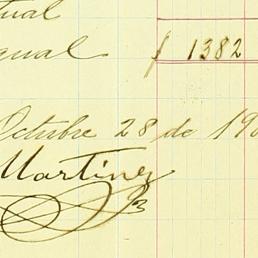 tual
gual $ 1382
Octubre 28 de 190
Martinez